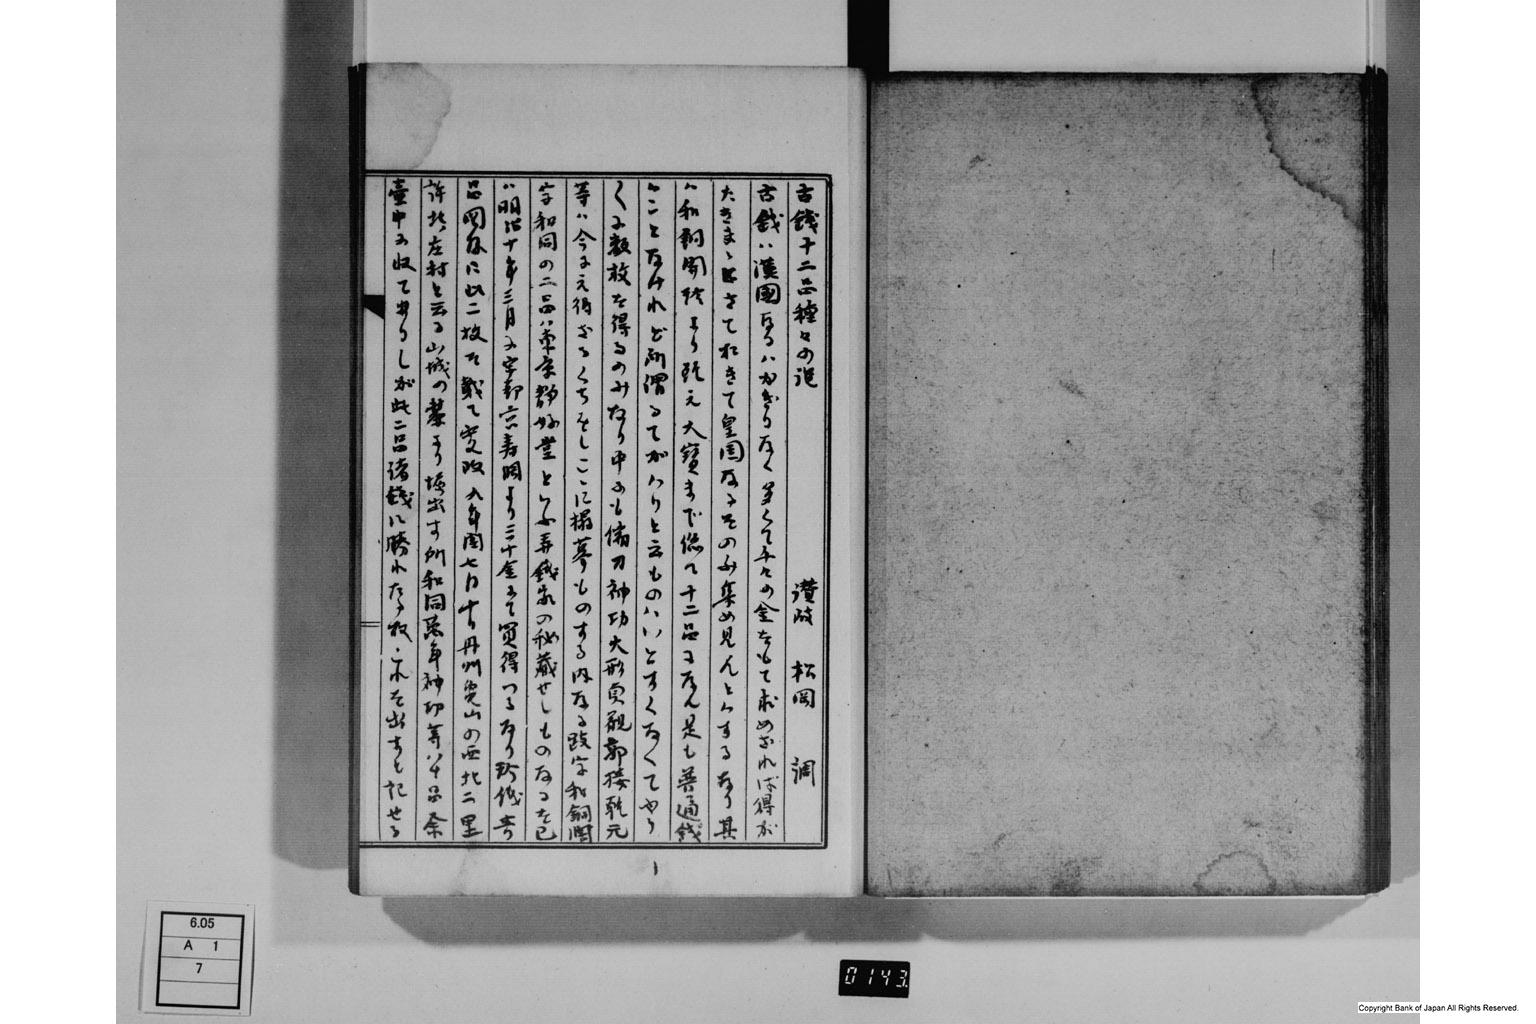 古錢十二品種々の説
讃岐 松岡 調
古錢ハ漢國なるハかぎりなく多くて千々の金をもて求めざれば得が
たきまゝにさておきて皇国なるそのみ集め見んとする なり其
ハ和銅開珎より乾元大寶まで総て十二品になん是も普通錢
ハことなけれど所謂るてがハりと云ものハいとすくなくてやう
く に数枚を得るのみなり中にも 刀神功大形貞観 接乾元
等ハ今に え得ざる くちをしここに搨 ものする内なる 字和銅開
字和同の二品ハ東京静好堂といふ弄錢家の秘蔵せしものなるを已
ハ明治十年三月に宇都宮壽 より三十金にて買得つるなり珎錢奇
品図録に此二枚を載て 政九年 七月 丹州 山の西北二里
許 庄村と云る山城の より堀出す所和同萬年神功等八十品余
壷中に収てありしが此二品諸錢に勝れたる故 出すと記せる
6.05
A 1
7
0143
Copyright Bank of Japan All Rights Reserved.